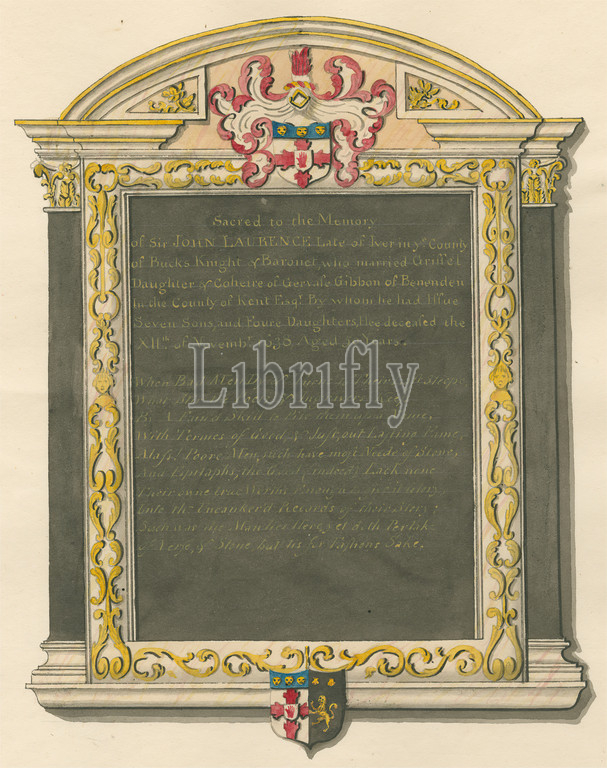 Sacred to the Memory
of Sir JOHN LAURENCE Late of Iver in yᵉ County
of Bucks Knight & Baronet, who married Grissel
Daughter & Coheire of Gervase Gibbon of Benenden
In the County of Kent Esqʳ. By whom he had Issue
Seven Sons, and Foure Daughters, Hee deceased the
XIIᵗʰ. of Novembʳ. Aged Years.
When Bad Men
What
With Termes of Good, & Just, out Lasting Fame,
Alass! Poore Men, such have most Neede of Stone,
And Epitaphs, the Good Lack none
Their owne true Worth's Enough
Into the Records of Story;
Such was the Man lies Here, yet doth Partake
of Verse, & Stone, but tis for Fashions Sake.
Librifly